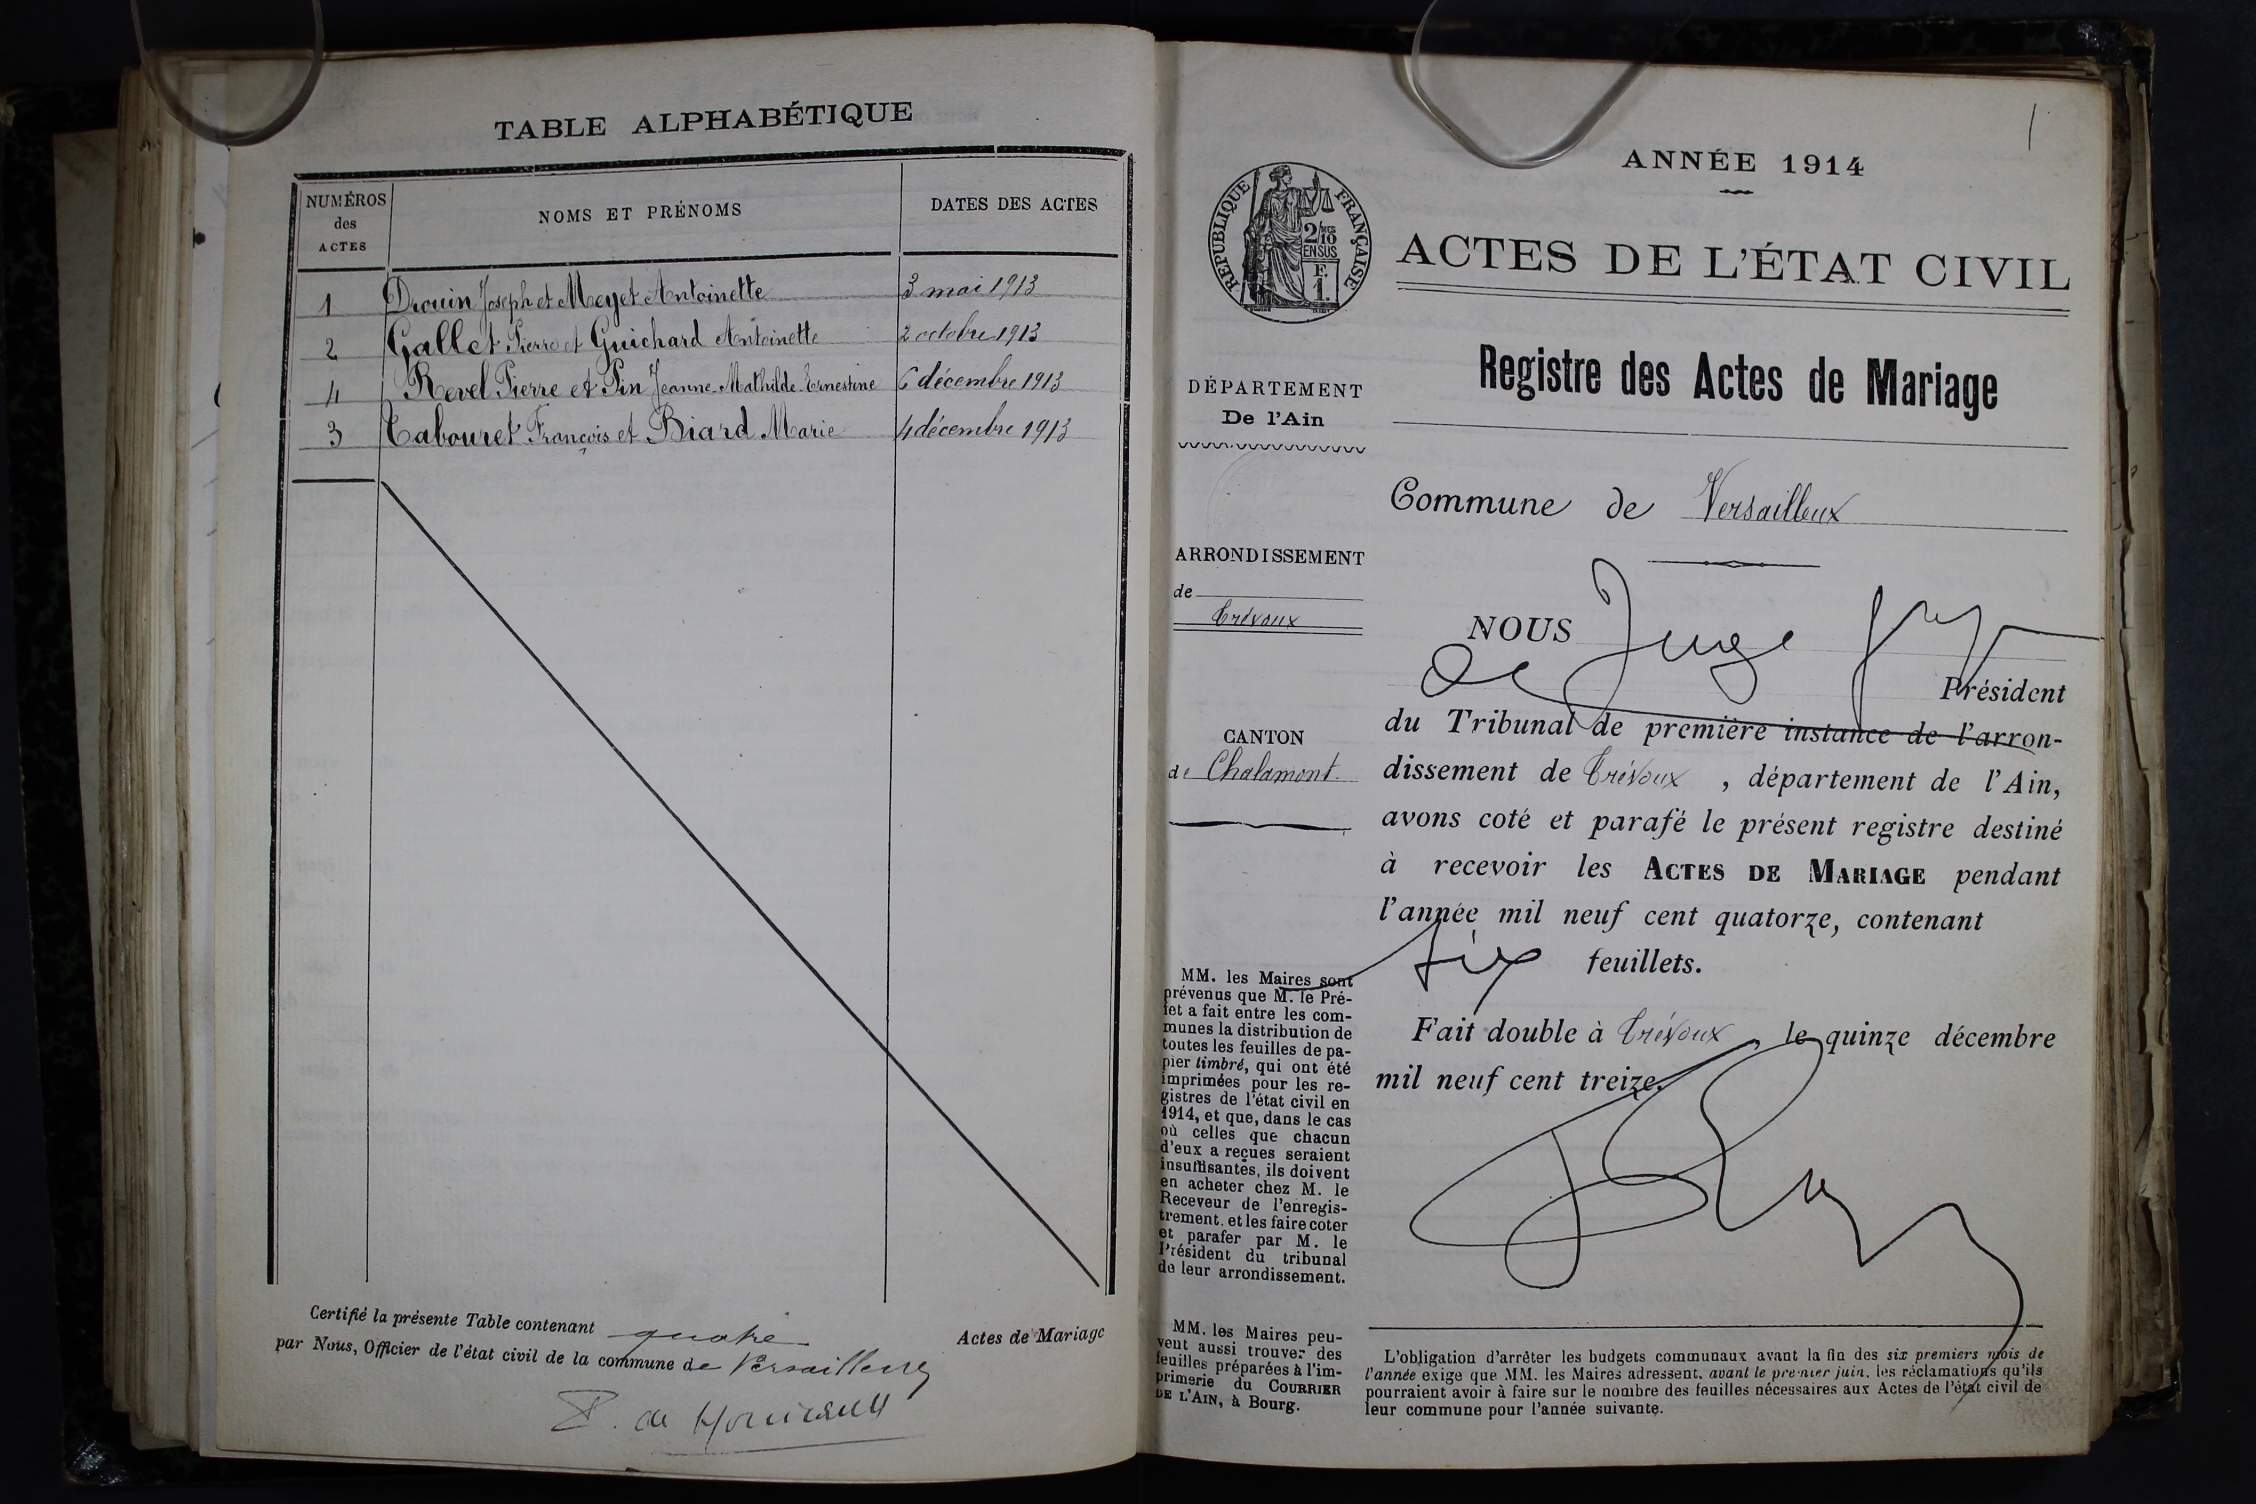 TABLE ALPHABÉTIQUE
NUMÉROS
des
ACTES
NOMS ET PRÉNOMS
DATES DES ACTES
1 Drouin Joseph et Meyet Antoinette 3 mai 1913
2 Gallet Pierre et Guichard Antoinette 2 octobre 1913
4 Revel Pierre et Pin Jeanne Mathilde Ernestine 6 décembre 1913
3 Tabouret François et Biard Marie 4 décembre 1913
Certifié la présente Table contenant quatre Actes de Mariage
par Nous, Officier de l'état civil de la commune de Versailleux
1
ANNÉE 1914
RÉPUBLIQUE FRANÇAISE
2/10 MES
EN SUS
F.
1.
ACTES DE L'ÉTAT CIVIL
Registre des Actes de Mariage
DÉPARTEMENT
De l'Ain
Commune de Versailleux
ARRONDISSEMENT
de
Trévoux
CANTON
de Chalamont
NOUS Juge
Président
du Tribunal de première instance de l'arron-
dissement de Trévoux, département de l'Ain,
avons coté et parafé le présent registre destiné
à recevoir les ACTES DE MARIAGE pendant
l'année mil neuf cent quatorze, contenant
six feuillets.
Fait double à Trévoux le quinze décembre
mil neuf cent treize.
MM. les Maires sont
prévenus que M. le Pré-
fet a fait entre les com-
munes la distribution de
toutes les feuilles de pa-
pier timbré, qui ont été
imprimées pour les re-
gistres de l'état civil en
1914, et que, dans le cas
où celles que chacun
d'eux a reçues seraient
insuffisantes, ils doivent
en acheter chez M. le
Receveur de l'enregis-
trement, et les faire coter
et parafer par M. le
Président du tribunal
de leur arrondissement.
MM. les Maires peu-
vent aussi trouver des
feuilles préparées à l'im-
primerie du COURRIER
DE L'AIN, à Bourg.
L'obligation d'arrêter les budgets communaux avant la fin des six premiers mois de
l'année exige que MM. les Maires adressent, avant le premier juin, les réclamations qu'ils
pourraient avoir à faire sur le nombre des feuilles nécessaires aux Actes de l'état civil de
leur commune pour l'année suivante.